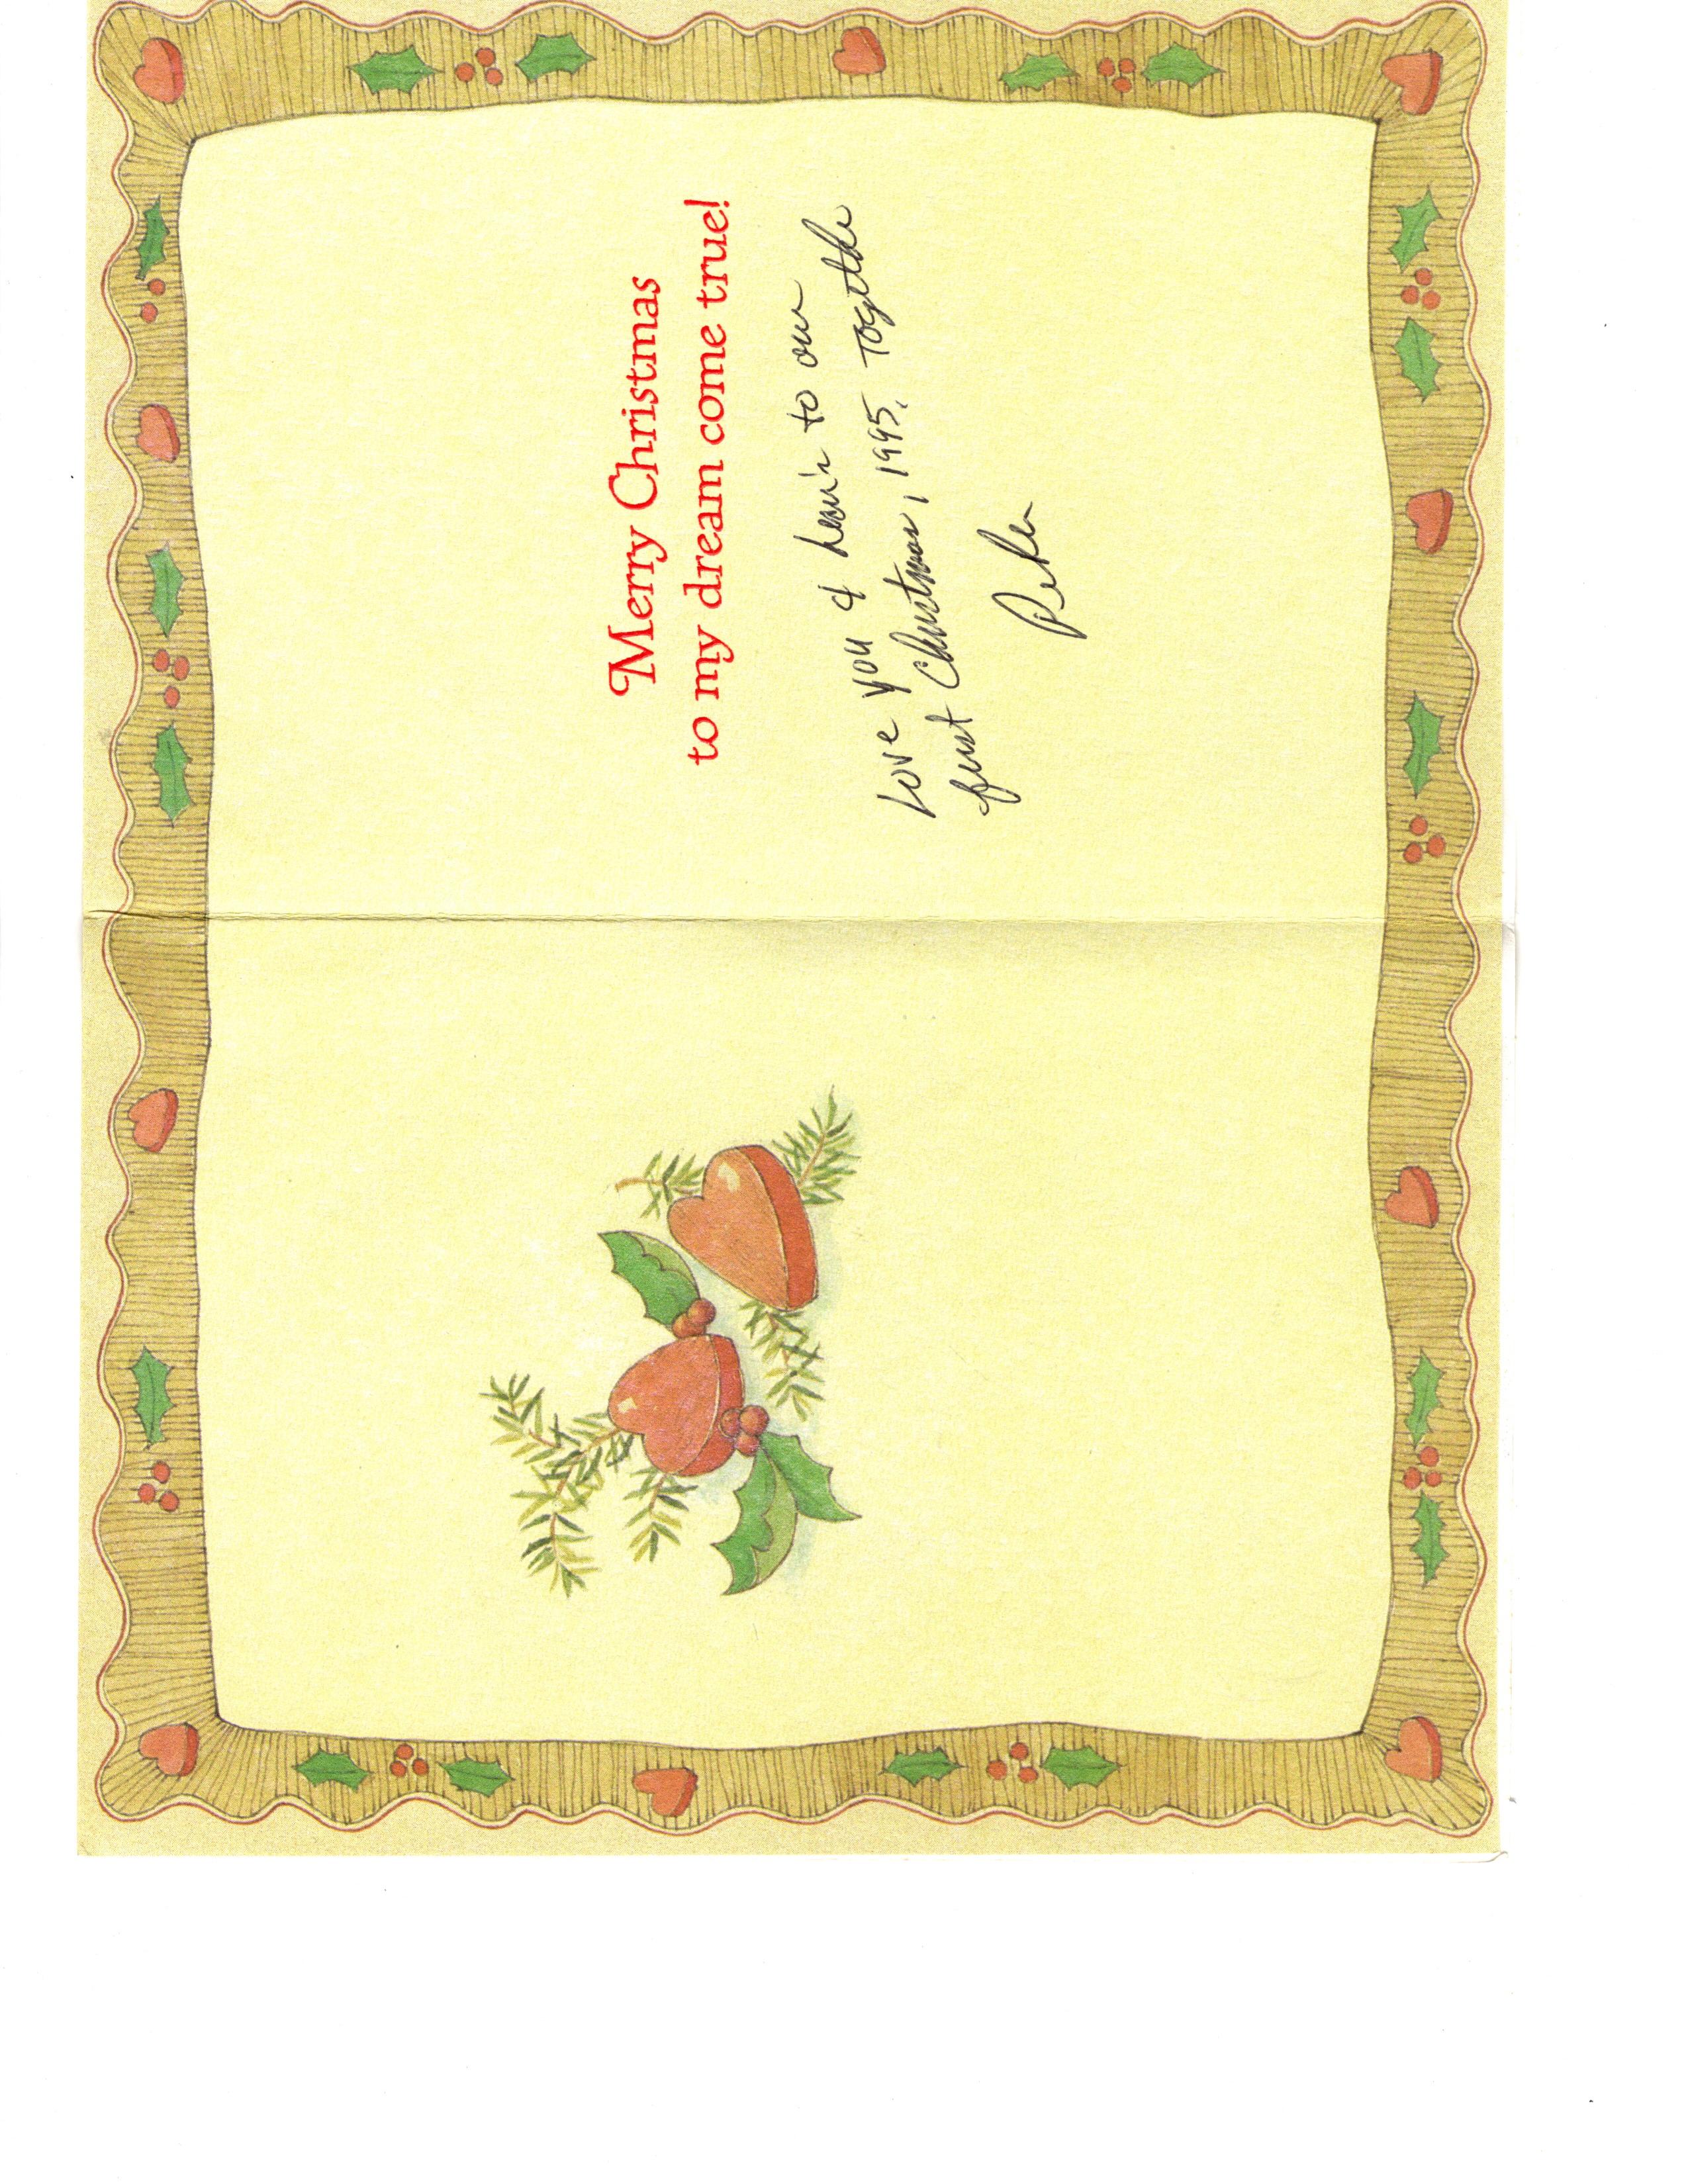 Merry Christmas
to my dream come true!
Love you & here's to our
first Christmas, 1995, together
Peter